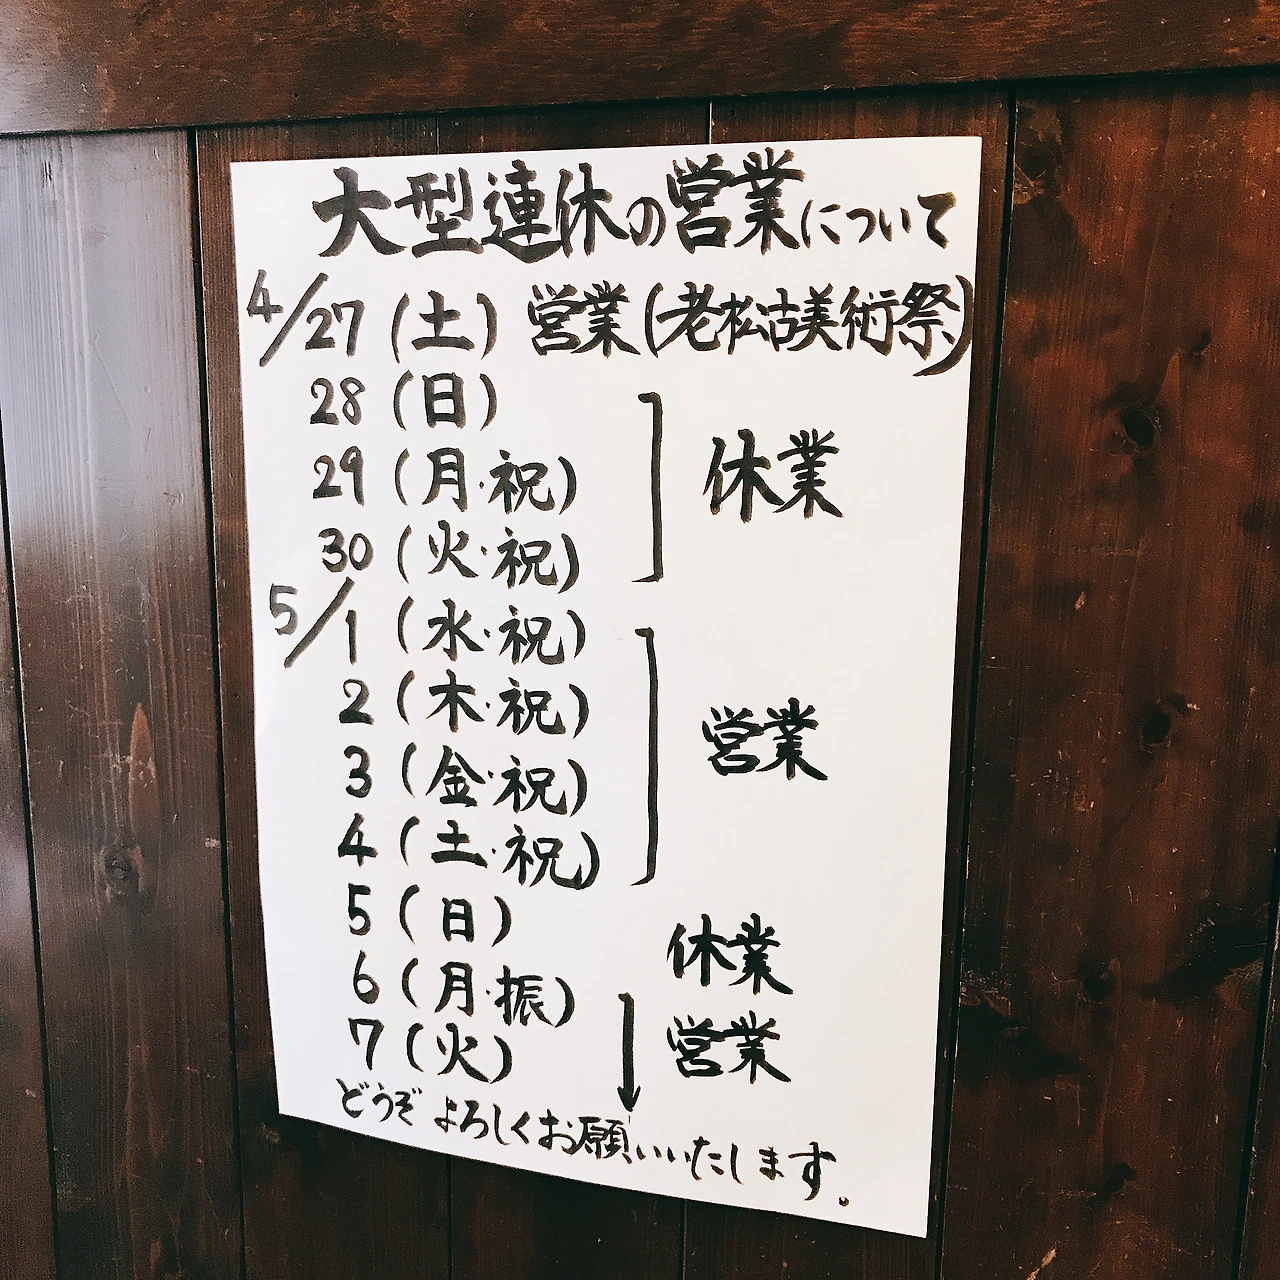 大型連休の営業について
4/27 (土) 営業(老松古美術祭)
28 (日)
29 (月・祝) 休業
30 (火・祝)
5/1 (水・祝)
2 (木・祝)
3 (金・祝) 営業
4 (土・祝)
5 (日) 休業
6 (月・振)
7 (火) 営業
どうぞよろしくお願いいたします。